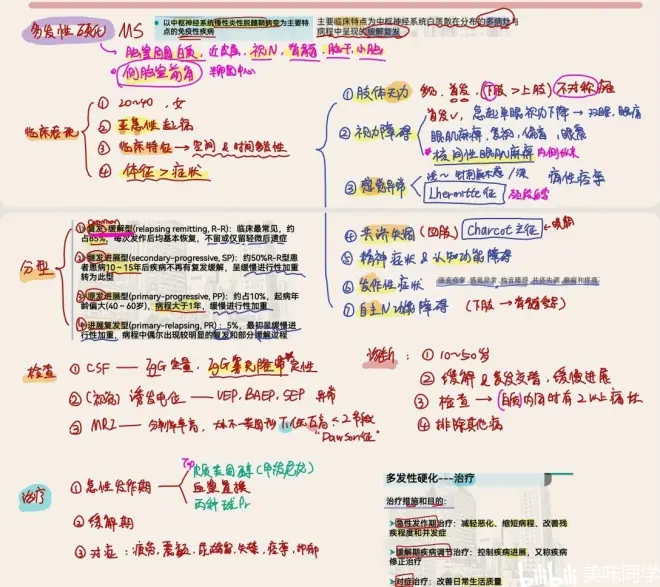 多发性硬化 MS
以中枢神经系统慢性炎性脱髓鞘病变为主要特点的免疫性疾病
主要临床特点为中枢神经系统白质散在分布的多病灶与病程中呈现的缓解复发
脑室周围白质、近皮质、视N、脊髓、脑干、小脑
侧脑室前角
临床表现
① 20~40，女
② 亚急性起病
③ 临床特征→空间&时间多发性
④ 体征>症状
① 肢体无力 首发 (下肢>上肢) 不对称
② 视力障碍
首发 急起单眼视力下降→双眼，眼痛
眼肌麻痹，复视
核间性眼肌麻痹
③ 感觉异常
痛性痉挛
Lhermitte征
④ 共济失调 (四肢) Charcot三主征→晚期
⑤ 精神症状&认知功能障碍
⑥ 发作性症状
⑦ 自主N功能障碍 (下肢→脊髓受累)
分型
①复发-缓解型(relapsing remitting, R-R)：临床最常见，约占85%，每次发作后均基本恢复，不留或仅留轻微后遗症
②继发进展型(secondary-progressive, SP)：约50%R-R型患者患病10~15年后疾病不再有复发缓解，呈缓慢进行性加重转为此型
③原发进展型(primary-progressive, PP)：约占10%，起病年龄偏大(40~60岁)，病程大于1年，缓慢进行性加重
④进展复发型(primary-relapsing, PR)：5%，最初呈缓慢进行性加重，病程中偶尔出现较明显的复发和部分缓解过程
检查
① CSF — IgG 生量，IgG寡克隆带定性
② 诱发电位 — VEP、BAEP、SEP 异常
③ MRI — 分辨率高，大小不一类圆形T₁低T₂高
"Dawson征"
诊断：① 10~50岁
② 缓解&复发交替，缓慢进展
③ 检查→白质内同时有2以上病灶
④ 排除其他病
治疗
① 急性发作期
皮质类固醇
血浆置换
丙种球Pr
② 缓解期
③ 对症：疲劳，震颤，尿潴留，失禁，痉挛，抑郁
多发性硬化---治疗
治疗措施和目的：
急性发作期治疗：减轻恶化、缩短病程、改善残疾程度和并发症
缓解期疾病调节治疗：控制疾病进展，又称疾病修正治疗
对症治疗：改善日常生活质量
bilibili 美味同学